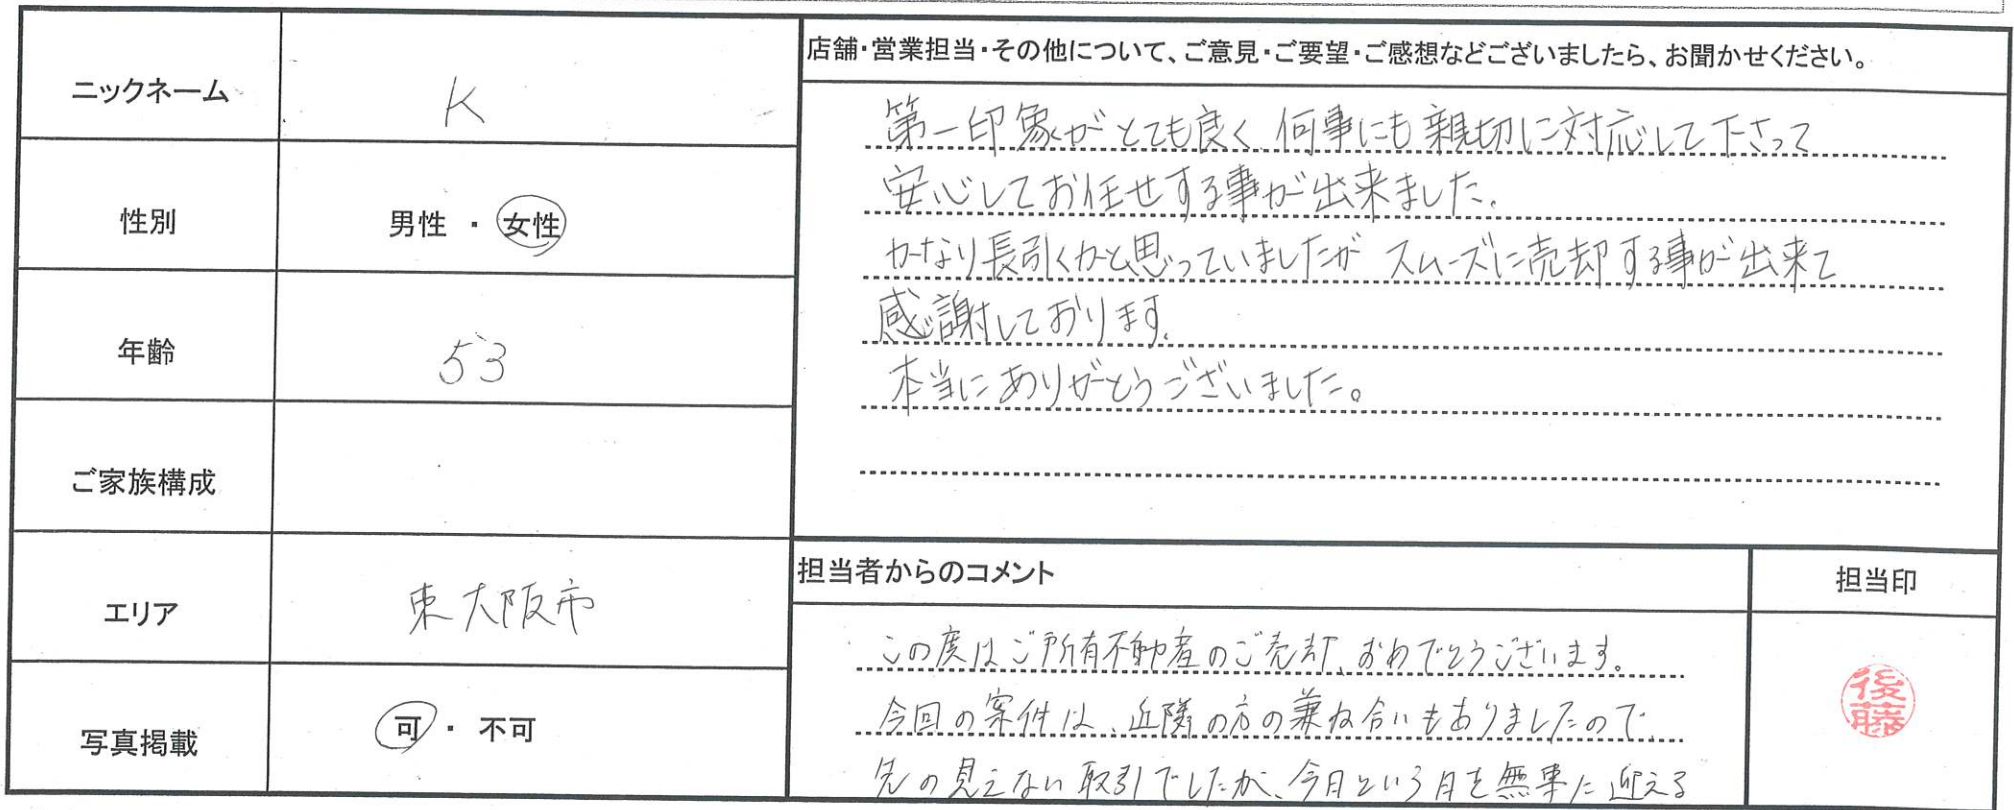 ニックネーム
K
性別
男性 ・ 女性
年齢
53
ご家族構成
エリア
東大阪市
写真掲載
可 ・ 不可
店舗・営業担当・その他について、ご意見・ご要望・ご感想などございましたら、お聞かせください。
第一印象がとても良く、何事にも親切に対応して下さって
安心してお任せする事が出来ました。
かなり長引くかと思っていましたが スムーズに売却する事が出来て
感謝しております。
本当にありがとうございました。
担当者からのコメント
この度はご所有不動産のご売却、おめでとうございます。
今回の案件は、近隣の方の兼ね合いもありましたので、
先の見えない取引でしたが、今日という日を無事に迎える
担当印
後藤